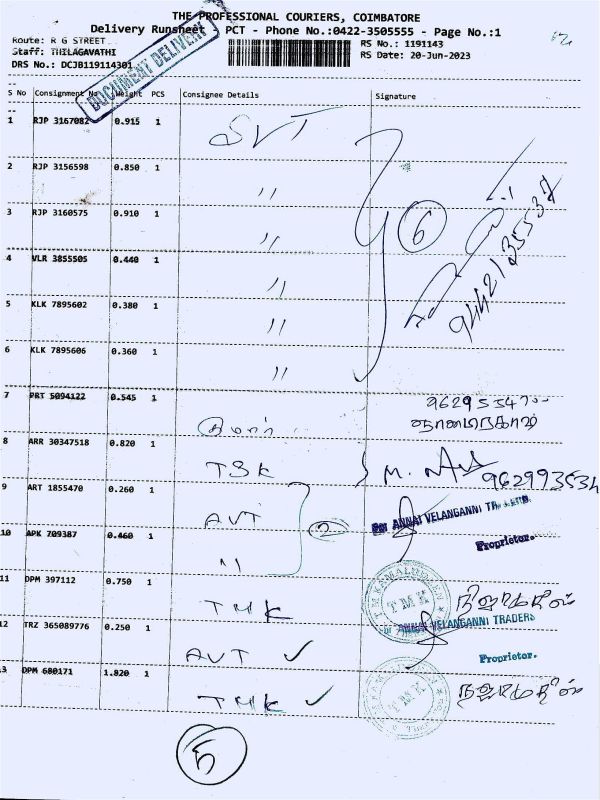 THE PROFESSIONAL COURIERS, COIMBATORE
Delivery Runsheet PCT - Phone No.:0422-3505555 - Page No.:1
Route: R G STREET
RS No.: 1191143
Staff: THILAGAVATHI
RS Date: 20-Jun-2023
DRS No.: DCJB119114301
DOCUMENT DELIVERY
S No Consignment No Weight PCS Consignee Details Signature
1 RJP 3167082 0.915 1 SVT
2 RJP 3156598 0.850 1 "
3 RJP 3160575 0.910 1 " 6
4 VLR 3855505 0.440 1 "
9442135537
5 KLK 7895602 0.380 1 "
6 KLK 7895606 0.360 1 "
7 PRT 5094122 0.545 1
8 ARR 30347518 0.820 1 TSK M.
9 ART 1855470 0.260 1 AVT
For ANNAI VELANGANNI TRADERS
10 APK 709387 0.460 1 " 2
Proprietor.
11 DPM 397112 0.750 1 TMK
TMK
For ANNAI VELANGANNI TRADERS
12 TRZ 365089776 0.250 1 AVT ✓
Proprietor.
13 DPM 680171 1.820 1 TMK ✓
TMK
5